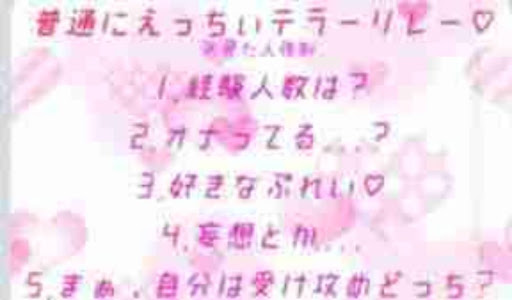 普通にえっちぃテラーリレー♡
※見た人強制
1.経験人数は？
2.オナってる...？
3.好きなぷれい♡
4.妄想とか...
5.まぁ、自分は受け攻めどっち？